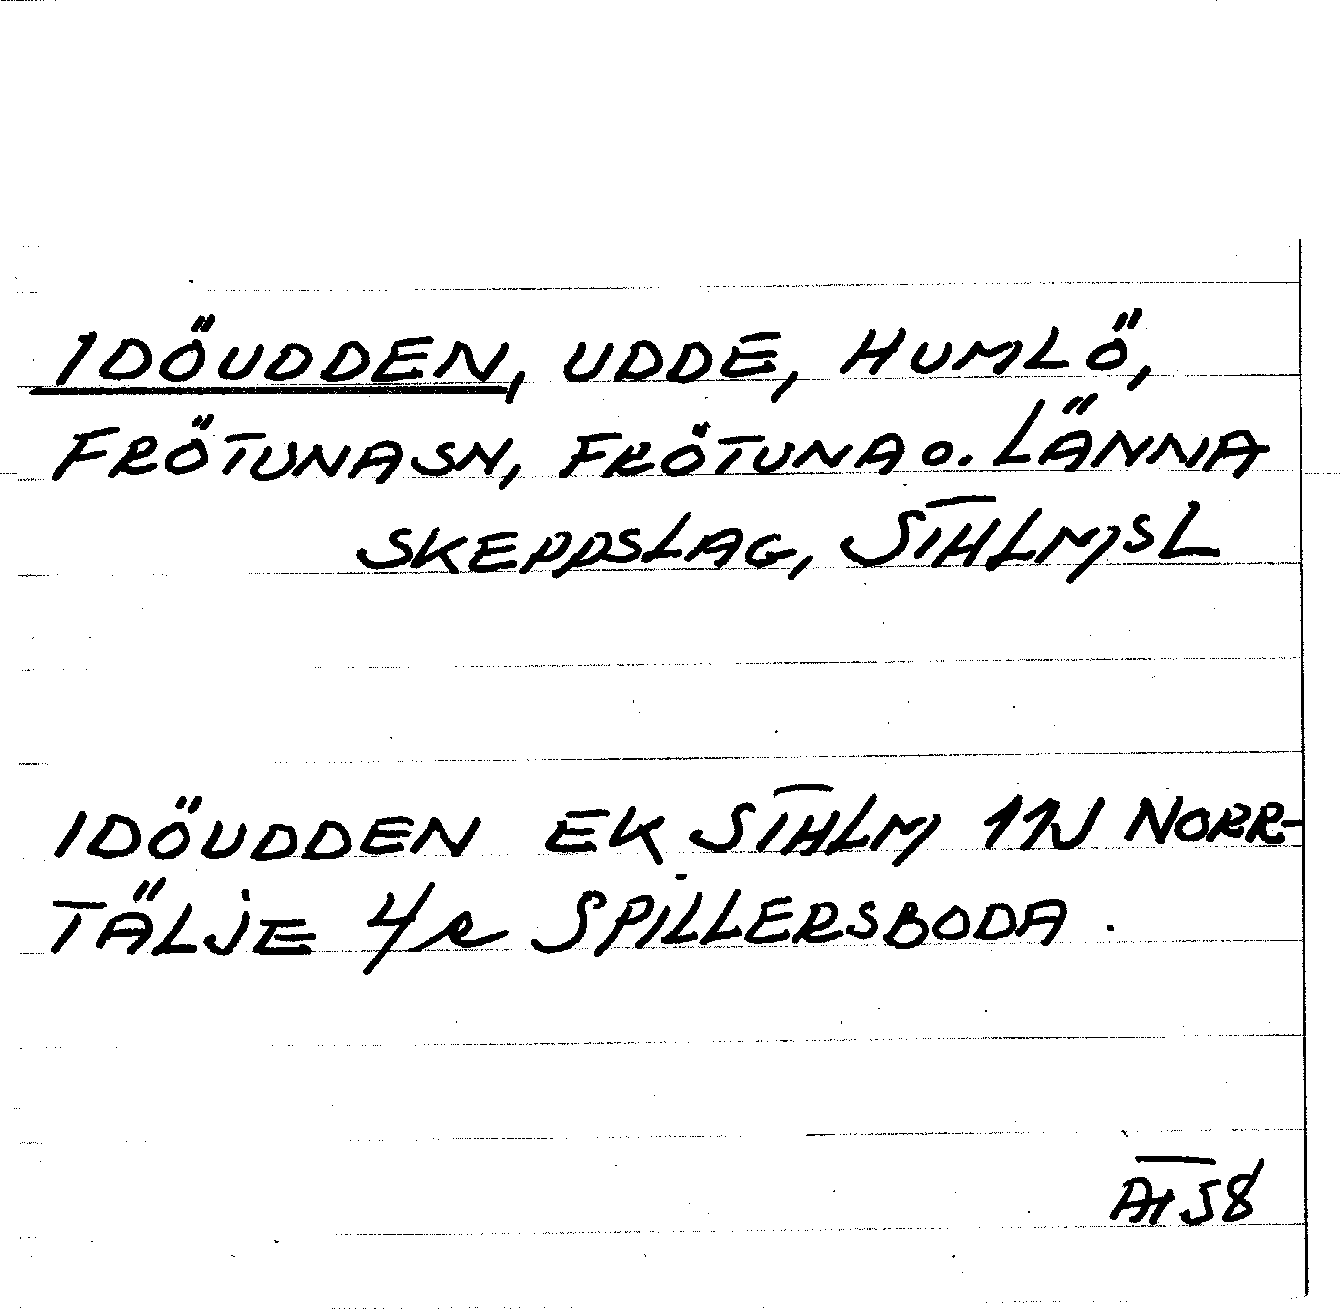 IDÖUDDEN, UDDE, HUMLÖ,
FRÖTUNA SN, FRÖTUNA O. LÄNNA
SKEPPSLAG, STHLMSL
IDÖUDDEN EK STHLM 11J NORR-
TÄLJE 4e SPILLERSBODA.
AT 58